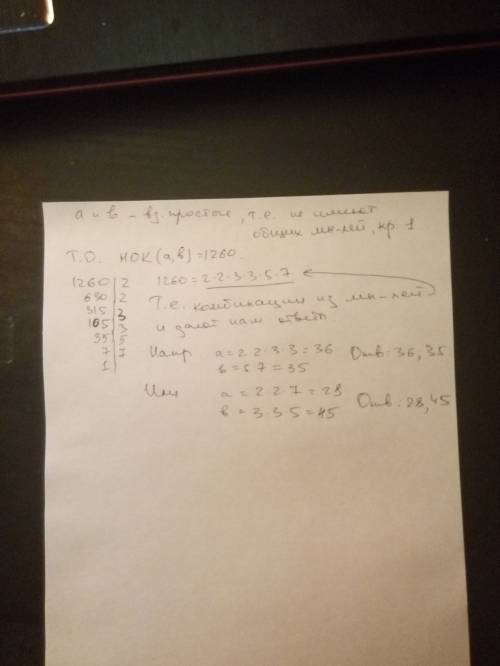 а и в – вз. простые, т.е. не имеют
общих мн-лей, кр 1
Т.О. НОК(а,в)=1260.
1260 | 2 1260 = 2·2·3·3·5·7
630 | 2
315 | 3 Т.е. комбинации из мн-лей
105 | 3 и дают нам ответ
35 | 5
7 | 7
1
Напр а = 2·2·3·3 = 36 Отв: 36, 35.
в = 5·7 = 35
Или а = 2·2·7 = 28 Отв: 28, 45
в = 3·3·5 = 45